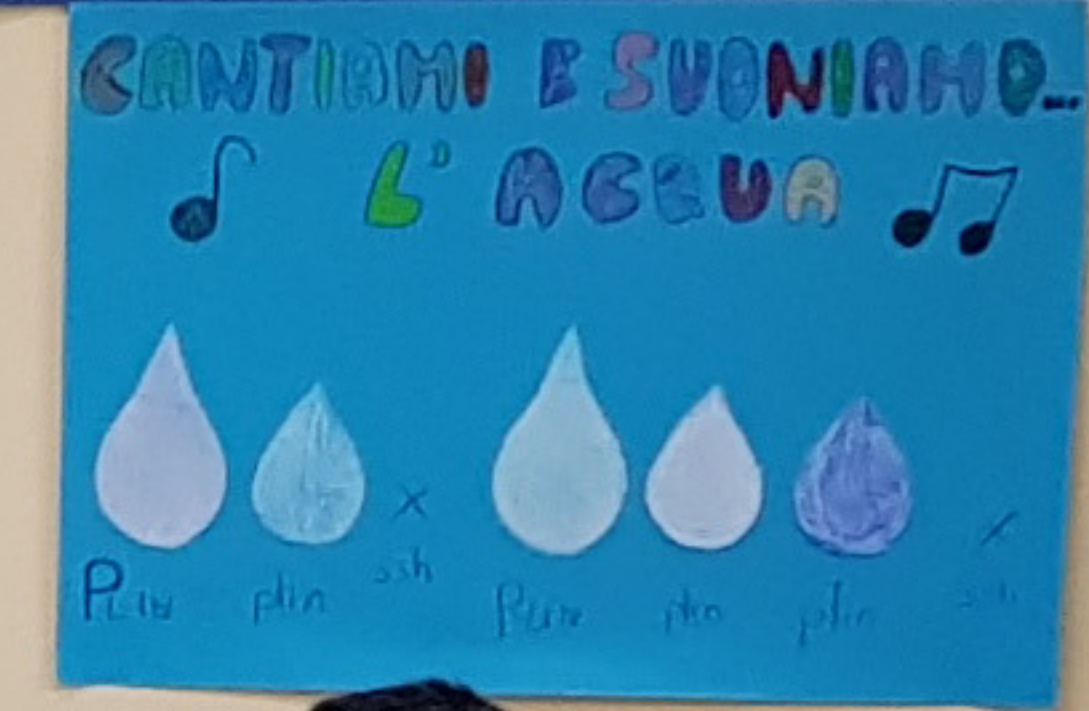 CANTIAMI E SUONIAMO...
L'ACQUA
x x
PLIN plin ssh PLIN plin plin ssh